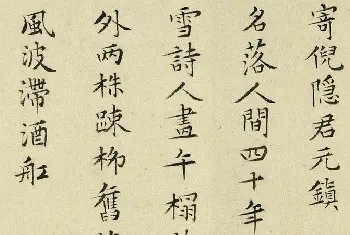 寄倪隐君元鎮
名落人間四十年
雪詩人畫午榻
外两株踈栁舊
風波滯酒舡